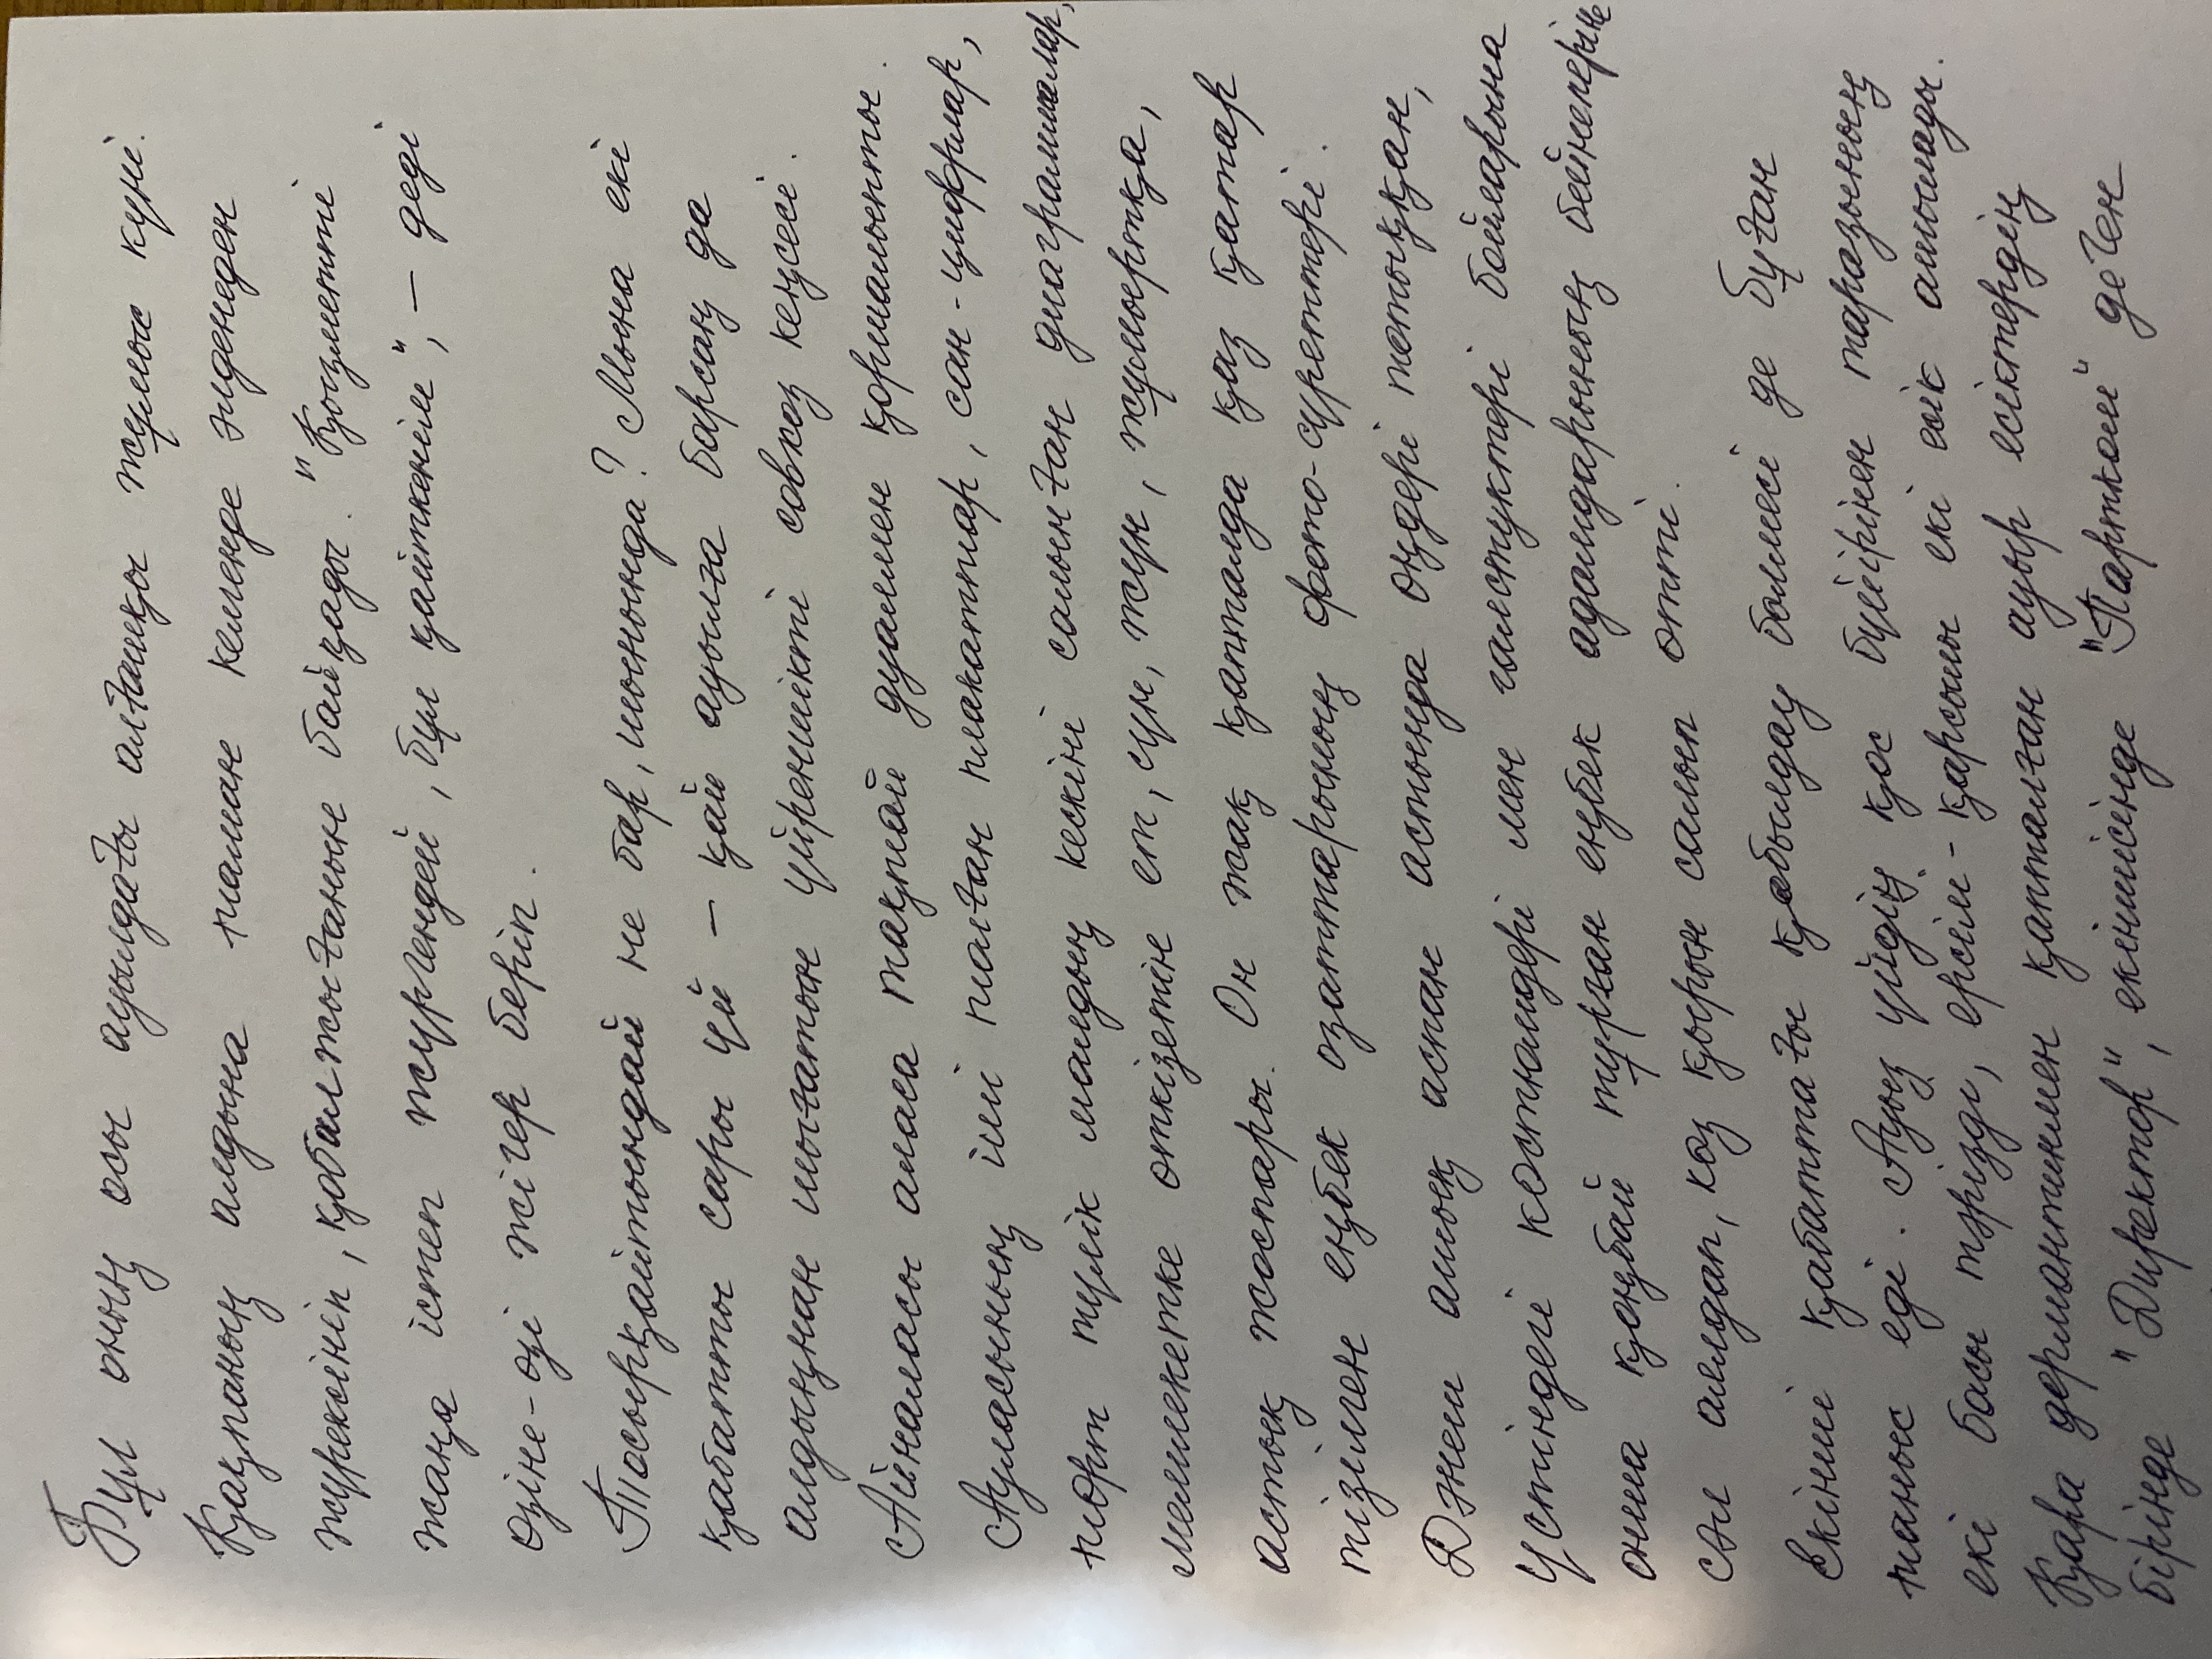 Бұл оның осы ауылдағы алғашқы жұмыс күні.
Қақпаның алдына таман келгенде әлденеден
жүрексініп, қобалжығанын байқады. "Қызметті
жаңа істеп жүргендей, бұл қайткенім", – деді
өзіне-өзі жігер беріп.
Тосырқайтындай не бар, шынында? Мына екі
қабатты сары үй – қай ауылға барсаң да
алдыңнан шығатын үйреншікті совхоз кеңсесі.
Айналасы аласа тақтай дуалмен қоршалыпты.
Ауласының іші толған плакаттар, сан-цифрлар,
төрт түлік малдың кескіні салынған диаграммалар,
мемлекетке өткізетін ет, сүн, жүн, жұмыртқа,
астық жоспары. Он жақ қапталда қаз қатар
тізілген еңбек озаттарының фото-суреттері.
Дәнеш ашық аспан астында өңдері тотыққан,
үстіндегі костюмдері мен галстуктері бойларына
онша қонбай тұрған еңбек адамдарының бейнелеріне
сәл аялдап, көз қырын салып өтті.
Екінші қабаттағы қабылдау бөлмесі де бұған
таныс еді. Ауыз үйдің қос бүйірінен таразының
екі басы тәрізді, ерсілі-қарсылы екі есік ашылады.
Қара дермантинмен қапталған ауыр есіктердің
бірінде "Директор", екіншісінде "Партком" деген